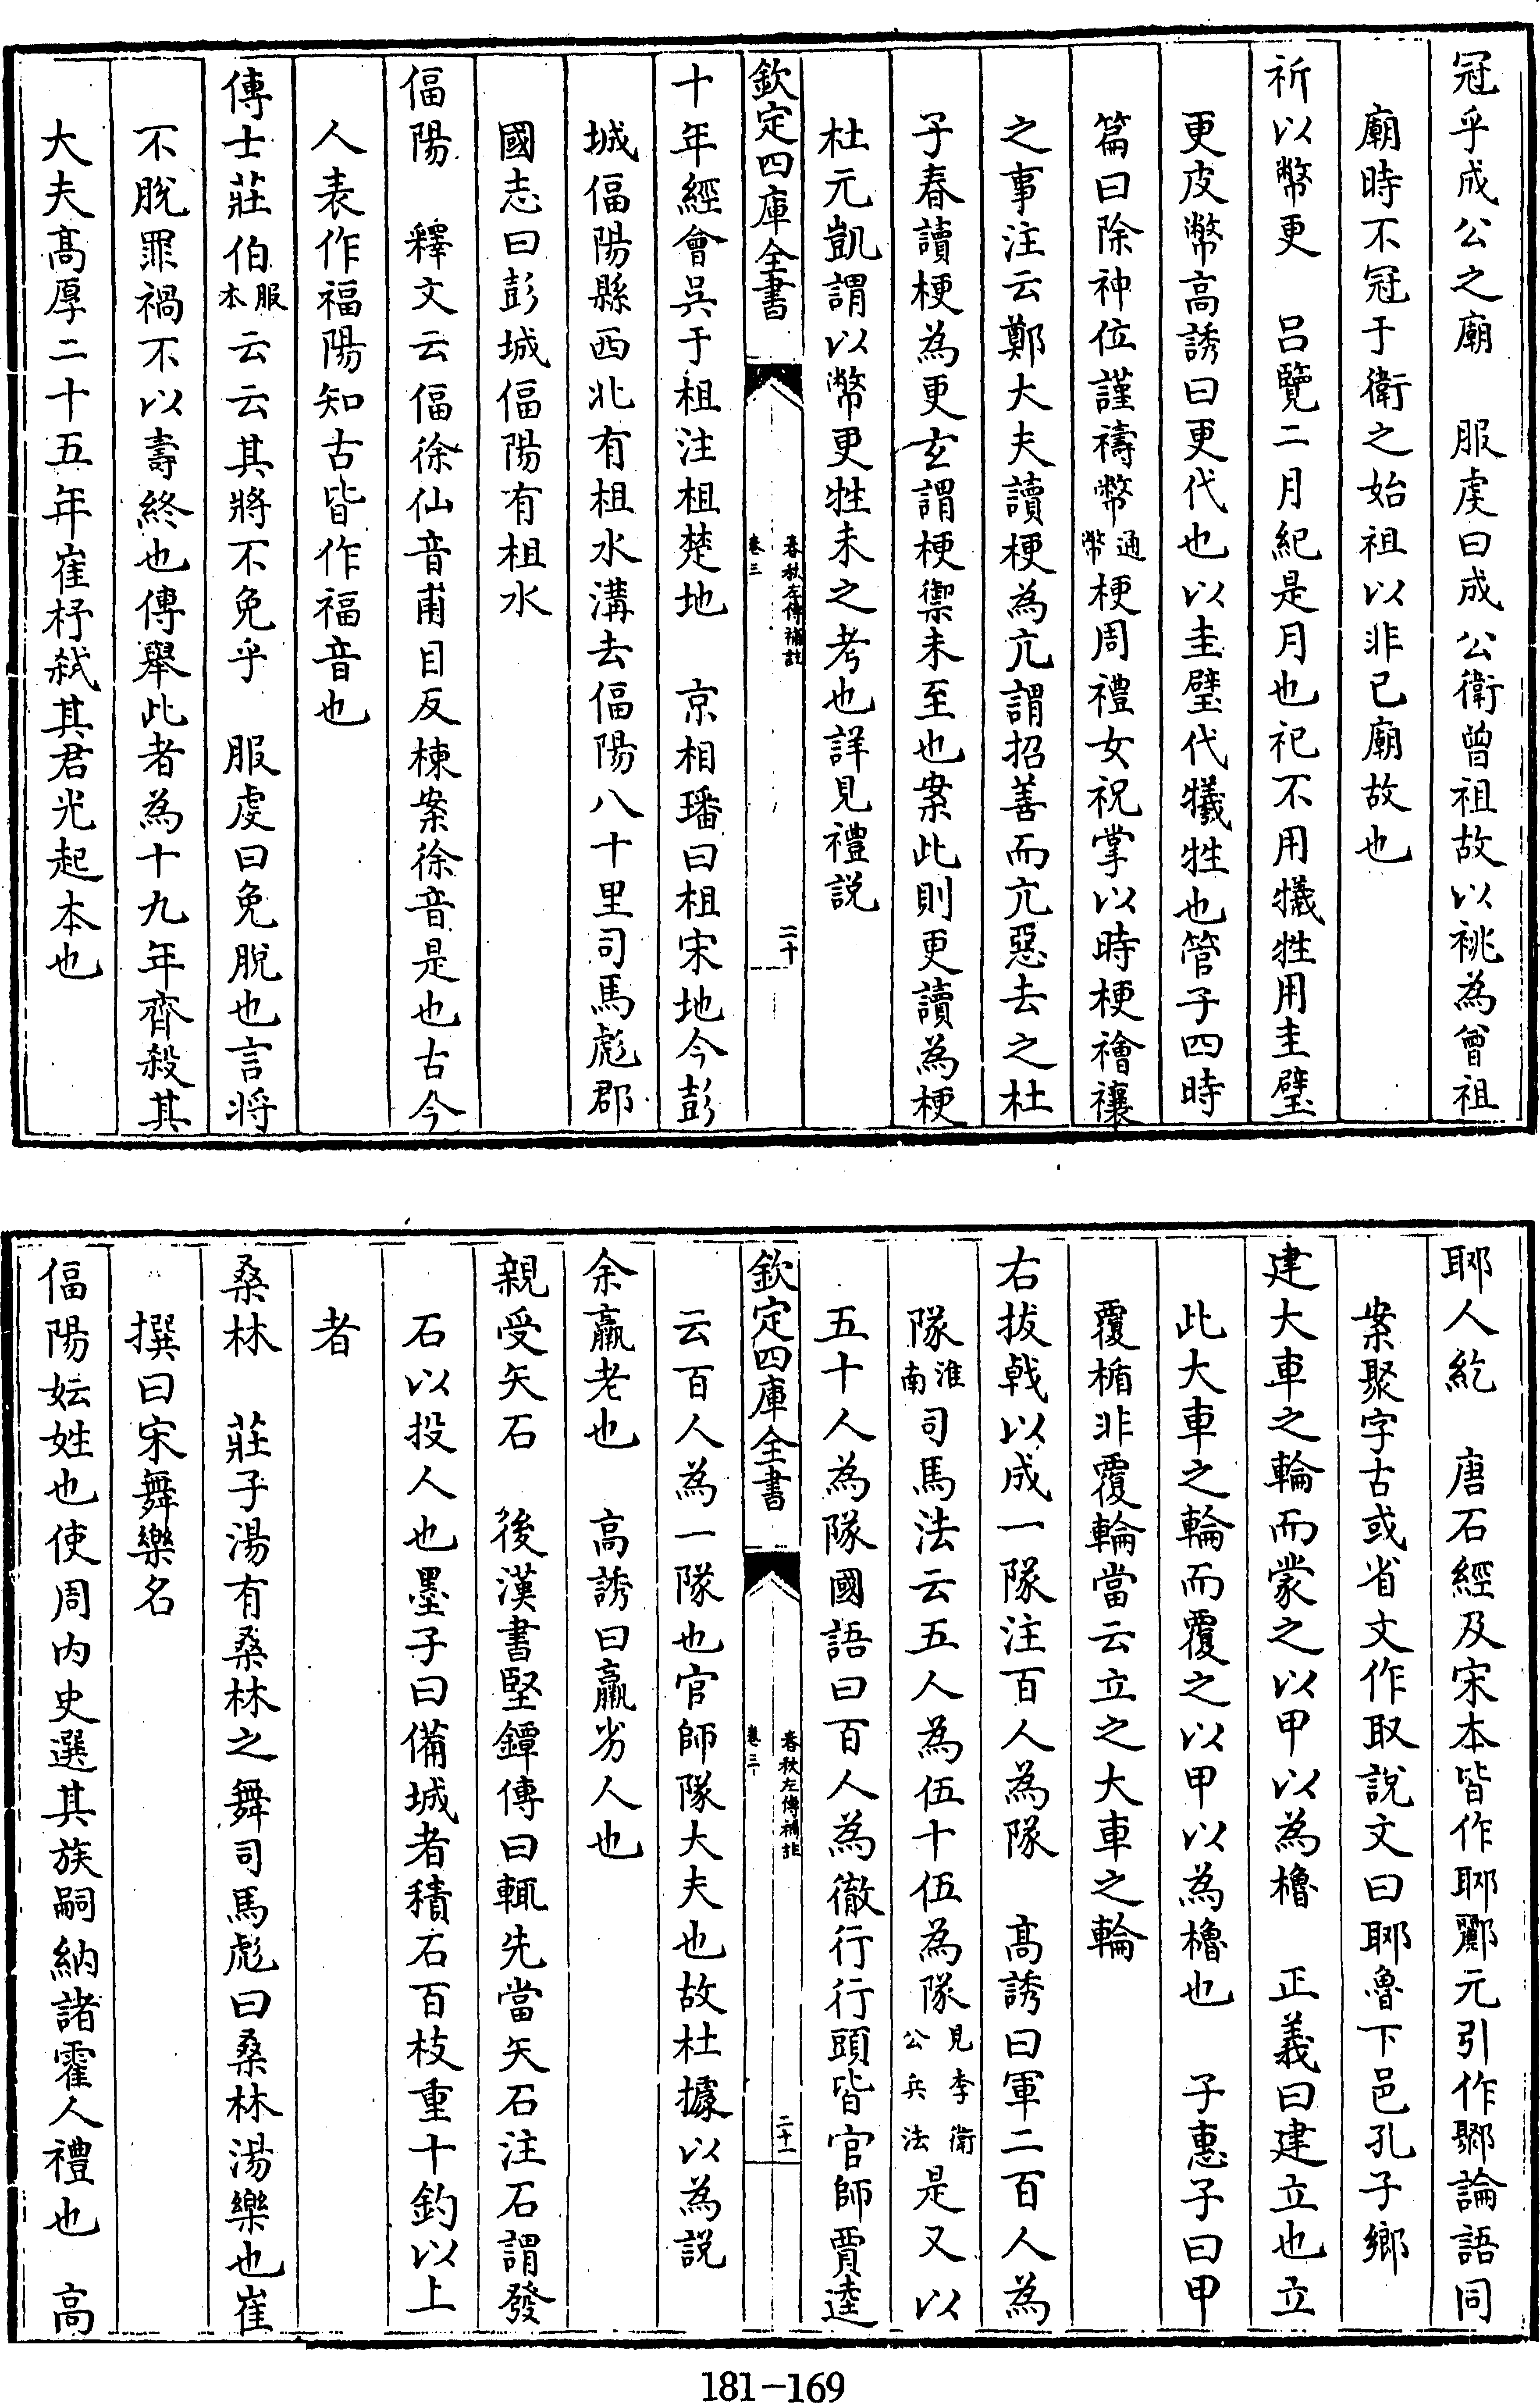 冠乎成公之廟　服虔曰成公衛曾祖故以祧為曾祖
廟時不冠于衛之始祖以非已廟故也
祈以幣更　吕覽二月紀是月也祀不用犧牲用圭璧
更皮幣高誘曰更代也以圭璧代犧牲也管子四時
篇曰除神位謹禱幣通幣梗周禮女祝掌以時梗禬禳
之事注云鄭大夫讀梗為亢謂招善而亢惡去之杜
子春讀梗為更玄謂梗禦未至也案此則更讀為梗
杜元凱謂以幣更牲未之考也詳見禮說
欽定四庫全書
春秋左傳補註
卷三
二十
十年經會吳于柤注柤楚地　京相璠曰柤宋地今彭
城偪陽縣西北有柤水溝去偪陽八十里司馬彪郡
國志曰彭城偪陽有柤水
偪陽　釋文云偪徐仙音甫目反棟案徐音是也古今
人表作福陽知古皆作福音也
傳士莊伯服本云云其將不免乎　服虔曰免脫也言將
不脫罪禍不以壽終也傳舉此者為十九年齊殺其
大夫高厚二十五年崔杼弒其君光起本也
郰人紇　唐石經及宋本皆作郰酈元引作鄹論語同
案聚字古或省文作取說文曰郰魯下邑孔子鄉
建大車之輪而蒙之以甲以為櫓　正義曰建立也立
此大車之輪而覆之以甲以為櫓也　子惠子曰甲
覆楯非覆輪當云立之大車之輪
右拔戟以成一隊注百人為隊　高誘曰軍二百人為
隊淮南司馬法云五人為伍十伍為隊見李衛公兵法是又以
五十人為隊國語曰百人為徹行行頭皆官師賈逵
欽定四庫全書
春秋左傳補註
卷三
二十一
云百人為一隊也官師隊大夫也故杜據以為說
余羸老也　高誘曰羸劣人也
親受矢石　後漢書堅鐔傳曰輒先當矢石注石謂發
石以投人也墨子曰備城者積石百枝重十鈞以上
者
桑林　莊子湯有桑林之舞司馬彪曰桑林湯樂也崔
撰曰宋舞樂名
偪陽妘姓也使周内史選其族嗣納諸霍人禮也　高
181-169